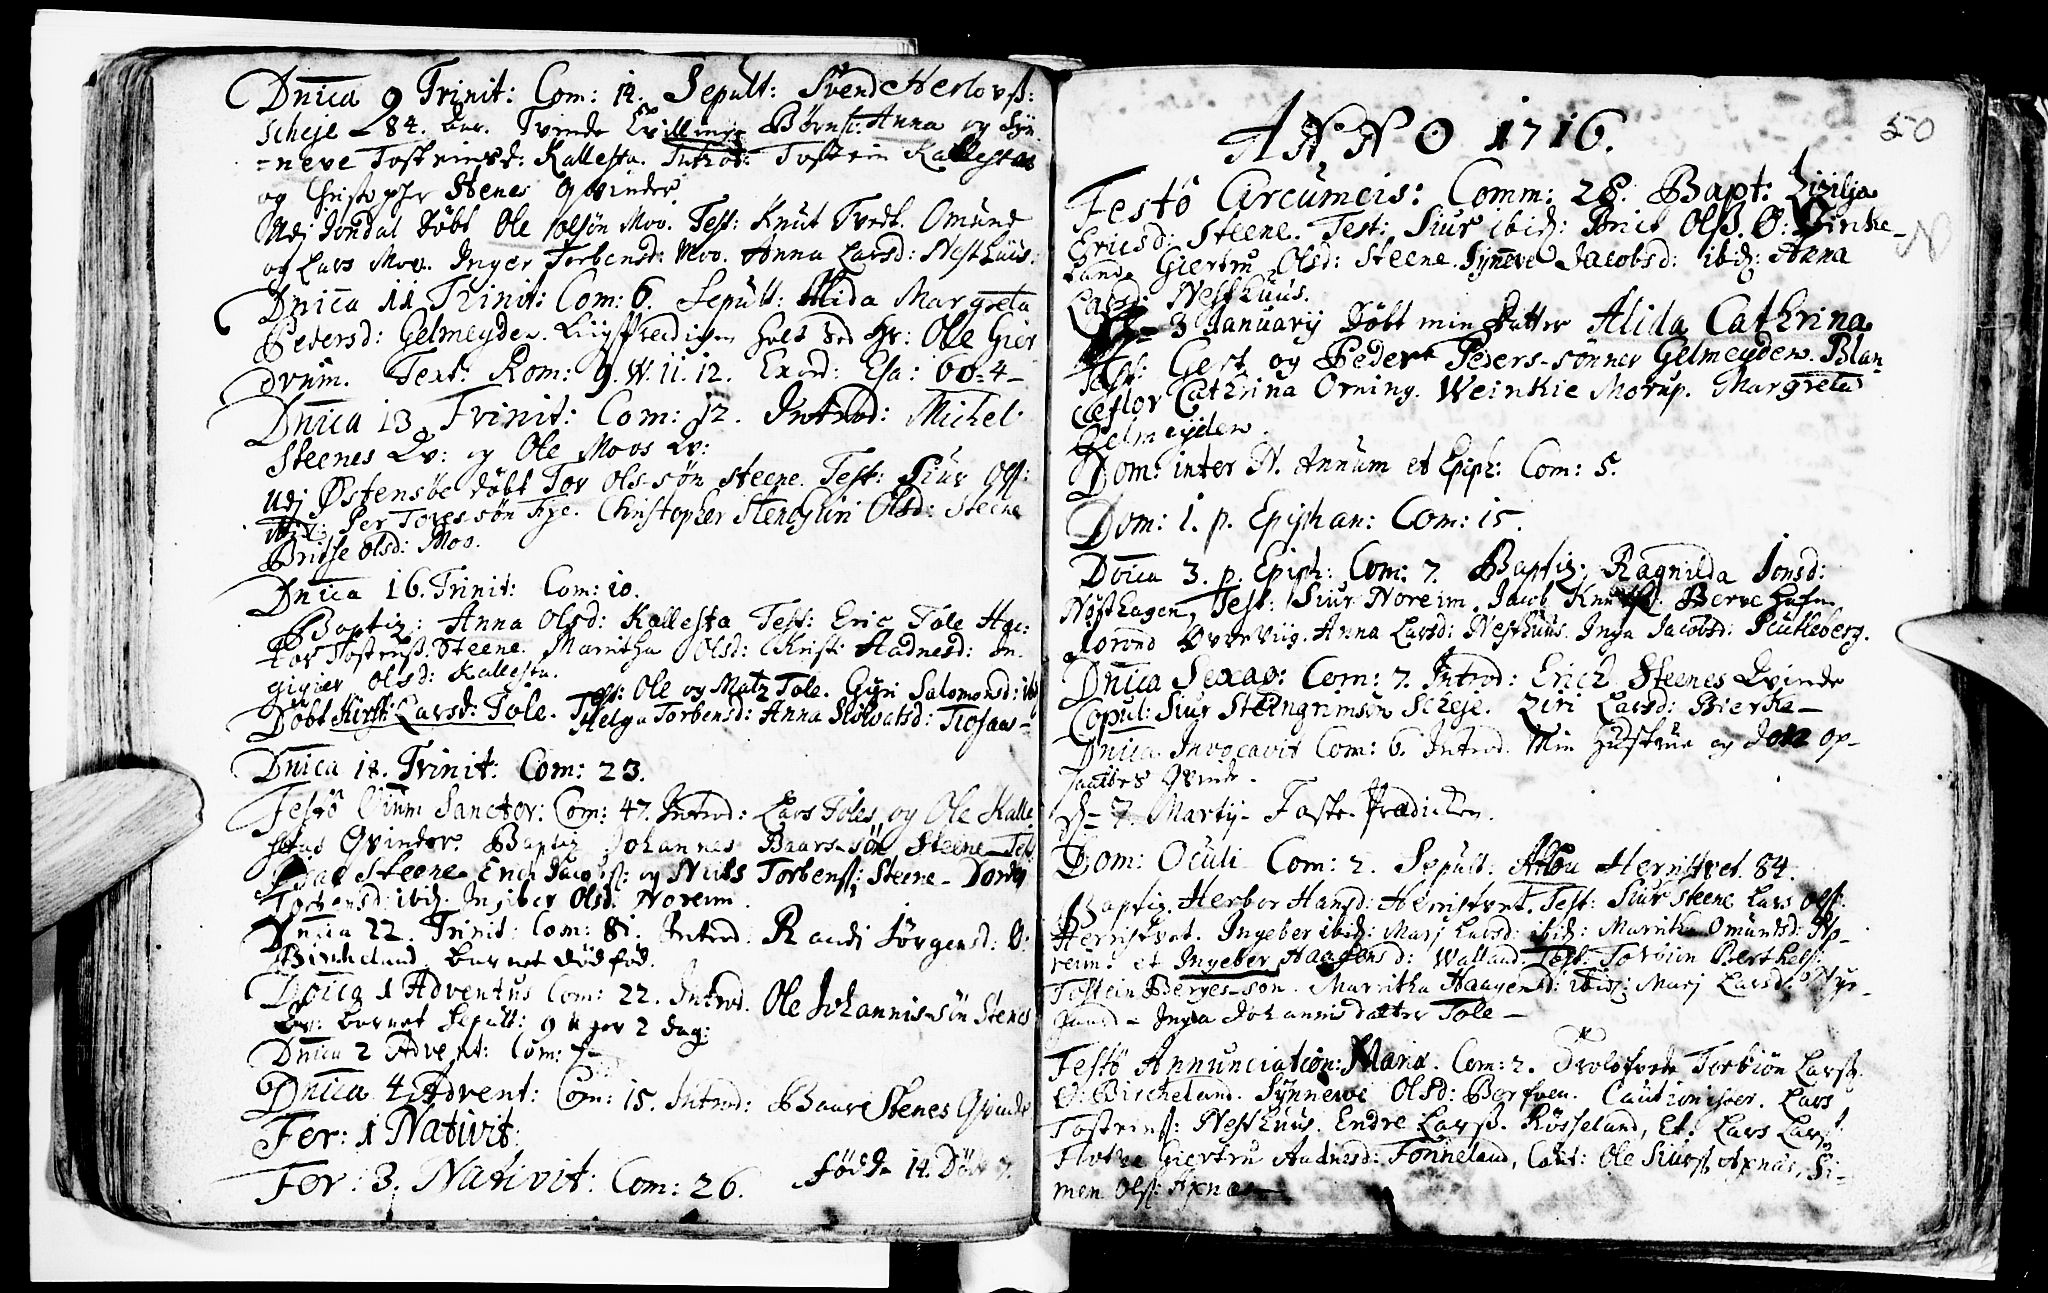 Dnica 9 Trinit: Com: 14. Sepult: Svend Herlovß:
Scheje - 84. Tvende Børn: Anna og Syn
=neve Tosteinsd: Kallesta. Introd: Tostein Kallestas
og Christopher Stenes Qvinder.
Udj Jondal Døbt Ole Olsøn Moo. Test: Knut Tvedt. Omund
og Lars Moo. Inger Torbensd: Moo. Anna Larsd: Nesthuus:
Dnica 11 Trinit: Com: 6. Sepult: Alida Margreta
Pedersd: Gelmeyden. Liigprædiken holt ved Hr: Ole Gier
drum. Text: Rom: 9. W. 11. 12. Exord: Esa: 60-4-
Dnica 13 Trinit: Com: 12. Introd: Michel
Steenes Qv: og Ole Moos Qv:
Udj Østensøe døbt Tor Ols-søn Steene. Test: Siur Olß:
ibid: Per Toressøn Fye. Christopher Stene, Olsd: Steene
Britse Olsd: Moo.
Dnica 16. Trinit: Com: 10.
Baptiz: Anna Olsd: Kallesta Test: Eric Tole
Tosteinß. Steene. Maritha Olsd: Hadnesd:
Olsd: Kallesta.
Døbt Kirst: Larsd: Tole. Test: Ole og Matz Tole. Gyri Salomonsd: ibid
Helga Torbensd: Anna
Dnica 18. Trinit: Com: 23.
Festo Oium Sanctor: Com: 47. Introd: Lars Toles og Ole Kalle
stas Qvinder. Baptiz Johannes Baars-søn Steene - Test
Steene Erich Jacobß: og Niels Torbenß: Steene - Dorde
Torbensd: ibid. Ingeber Olsd: Noreim.
Dnica 22. Trinit: Com: 81. Introd: Randi Jørgensd: Ø:
Birkeland. barnet dødfød.
Dnica 1 Adventus Com: 22. Introd. Ole Johannis-søn Stenes
Qv: barnet Sepult: 9 uger 2 dag:
Dnica 2 Advent: Com:
Dnica 4 Advent: Com: 15. Introd: Baar Stenes Qvinde
Fer: 1 Nativit:
Fer: 3. Nativit: Com: 26. fødde 14. Døde 7.
50
ANNO 1716.
Festo Circumcis: Comm: 28. Bapt: Zizilja
Ericsd: Steene. Test: Siur ibid: Olß. Ø: Birke-
lande Giertru Olsd: Steene. Synneve Jacobsd: ibid: Anna
Larsd: Nesthuus.
3 January Døbt min Datter Alida Cathrina
Test: Gert og Peder Peders-sønner Gelmeyden. Blan
ceflor Cathrina Orning. Weinkie Morup. Margreta
Gelmeyden.
Dom: inter N. Annum et Epiph: Com: 5.
Dom: 1. p. Epiphan: Com: 15.
Doica 3. p. Epiph: Com: 7. Baptiz: Ragnilda Jonsd:
Nøsthagen, Test: Siur Noreim. Jacob Berve
Anna Larsd: Nesthuus. Inga Jacobsd: Skutleberg.
Dnica Sexag: Com: 7. Introd: Erich Steenes Qvinde
Copul: Siur Steengrimsøn Scheje. Ziri Larsd: Bierka-
Dnica Invocavit Com: 6. Introd. Min Hustrue og Op-
Qvinde.
7 Martij - Faste Prædicken.
Dom: Oculi Com: 2. Sepult: Herristvet. 84.
Baptiz. Herbor Hansd: Herristvet. Test: Siur Steene Lars Olß:
Herristvet. Ingeber ibid: Marj Larsd: ibid: Maritha Omundsd: No-
reim: et Ingeber Haagensd: Walland. Test: Torbiøn Berthelß:
Tostein Berges-søn. Maritha Haagensd: ibid: Marj Larsd:
Inga Johannis datter Tole -
Festo Annunciation: Mariæ. Com: 2. Trolofvede Torbiøn Larß
Ø: Bircheland. Synnewe Olsd: Cautionister. Lars
Tosteinß: Nesthuus. Endre Larß. Røsseland, Et. Lars Larß
Giertru Tonneland, Caut: Ole Siurß Axnæs, Si-
men Olß: Axnæs -